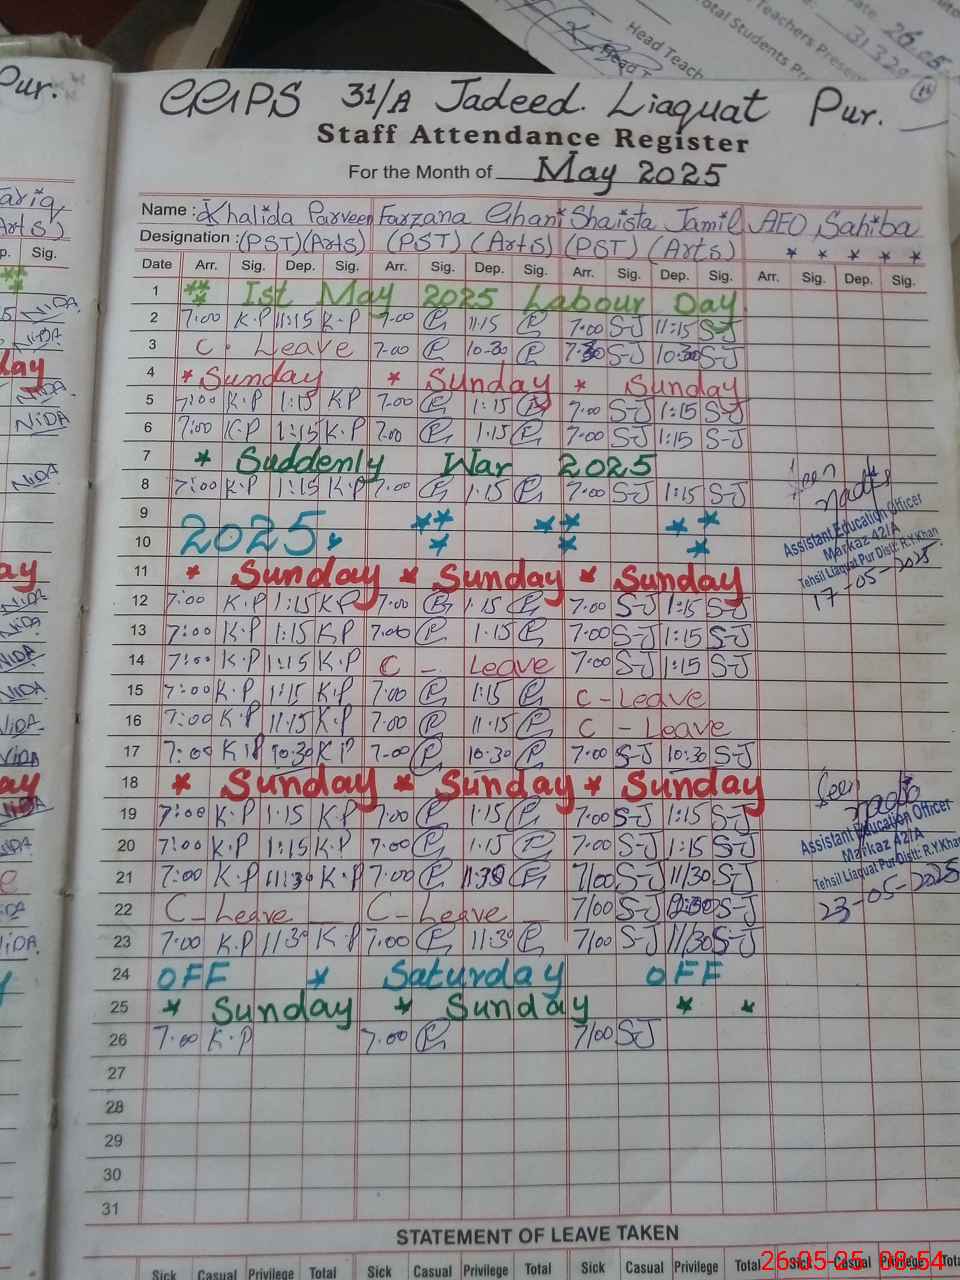 Head Teach
Head T
Teachers Present
Total Students Pre
Date 26.05
3132
Pur.
GGPS 31/A Jadeed. Liaquat Pur.
Staff Attendance Register
For the Month of May 2025
Name : Khalida Parveen Farzana Ghani Shaista Jamil AEO Sahiba
Designation : (PST) (Arts) (PST) (Arts) (PST) (Arts) * * * * *
Date Arr. Sig. Dep. Sig. Arr. Sig. Dep. Sig. Arr. Sig. Dep. Sig. Arr. Sig. Dep. Sig.
1 Ist May 2025 Labour Day
2 7:00 K.P 11:15 K.P 7:00 11:15 7:00 S-J 11:15 S-J
3 C. Leave 7:00 10:30 7:30 S-J 10:30 S-J
4 * Sunday * Sunday * Sunday
5 7:00 K.P 1:15 K.P 7:00 1:15 7:00 S-J 1:15 S-J
6 7:00 K.P 1:15 K.P 7:00 1:15 7:00 S-J 1:15 S-J
7 * Suddenly War 2025
8 7:00 K.P 1:15 K.P 7:00 1:15 7:00 S-J 1:15 S-J
9
10 2025
11 * Sunday * Sunday * Sunday
12 7:00 K.P 1:15 K.P 7:00 1:15 7:00 S-J 1:15 S-J
13 7:00 K.P 1:15 K.P 7:00 1:15 7:00 S-J 1:15 S-J
14 7:00 K.P 1:15 K.P C - Leave 7:00 S-J 1:15 S-J
15 7:00 K.P 1:15 K.P 7:00 1:15 C - Leave
16 7:00 K.P 11:15 K.P 7:00 11:15 C - Leave
17 7:00 K.P 10:30 K.P 7:00 10:30 7:00 S-J 10:30 S-J
18 * Sunday * Sunday * Sunday
19 7:00 K.P 1:15 K.P 7:00 1:15 7:00 S-J 1:15 S-J
20 7:00 K.P 1:15 K.P 7:00 1:15 7:00 S-J 1:15 S-J
21 7:00 K.P 11:30 K.P 7:00 11:30 7/00 S-J 11/30 S-J
22 C - Leave C - Leave 7/00 S-J S-J
23 7:00 K.P 11/30 K.P 7:00 11:30 7/00 S-J 11/30 S-J
24 OFF * Saturday OFF
25 * Sunday * Sunday * *
26 7:00 K.P 7:00 7/00 S-J
27
28
29
30
31
Seen
Assistant Education Officer
Markaz 42/A
Tehsil Liaquat Pur Distt: R.Y.Khan
17-05-2025
Seen
Assistant Education Officer
Markaz 42/A
Tehsil Liaquat Pur Distt: R.Y.Khan
23-05-2025
STATEMENT OF LEAVE TAKEN
Sick Casual Privilege Total Sick Casual Privilege Total Sick Casual Privilege Total Sick Casual Privilege Total
26-05-25 08:54